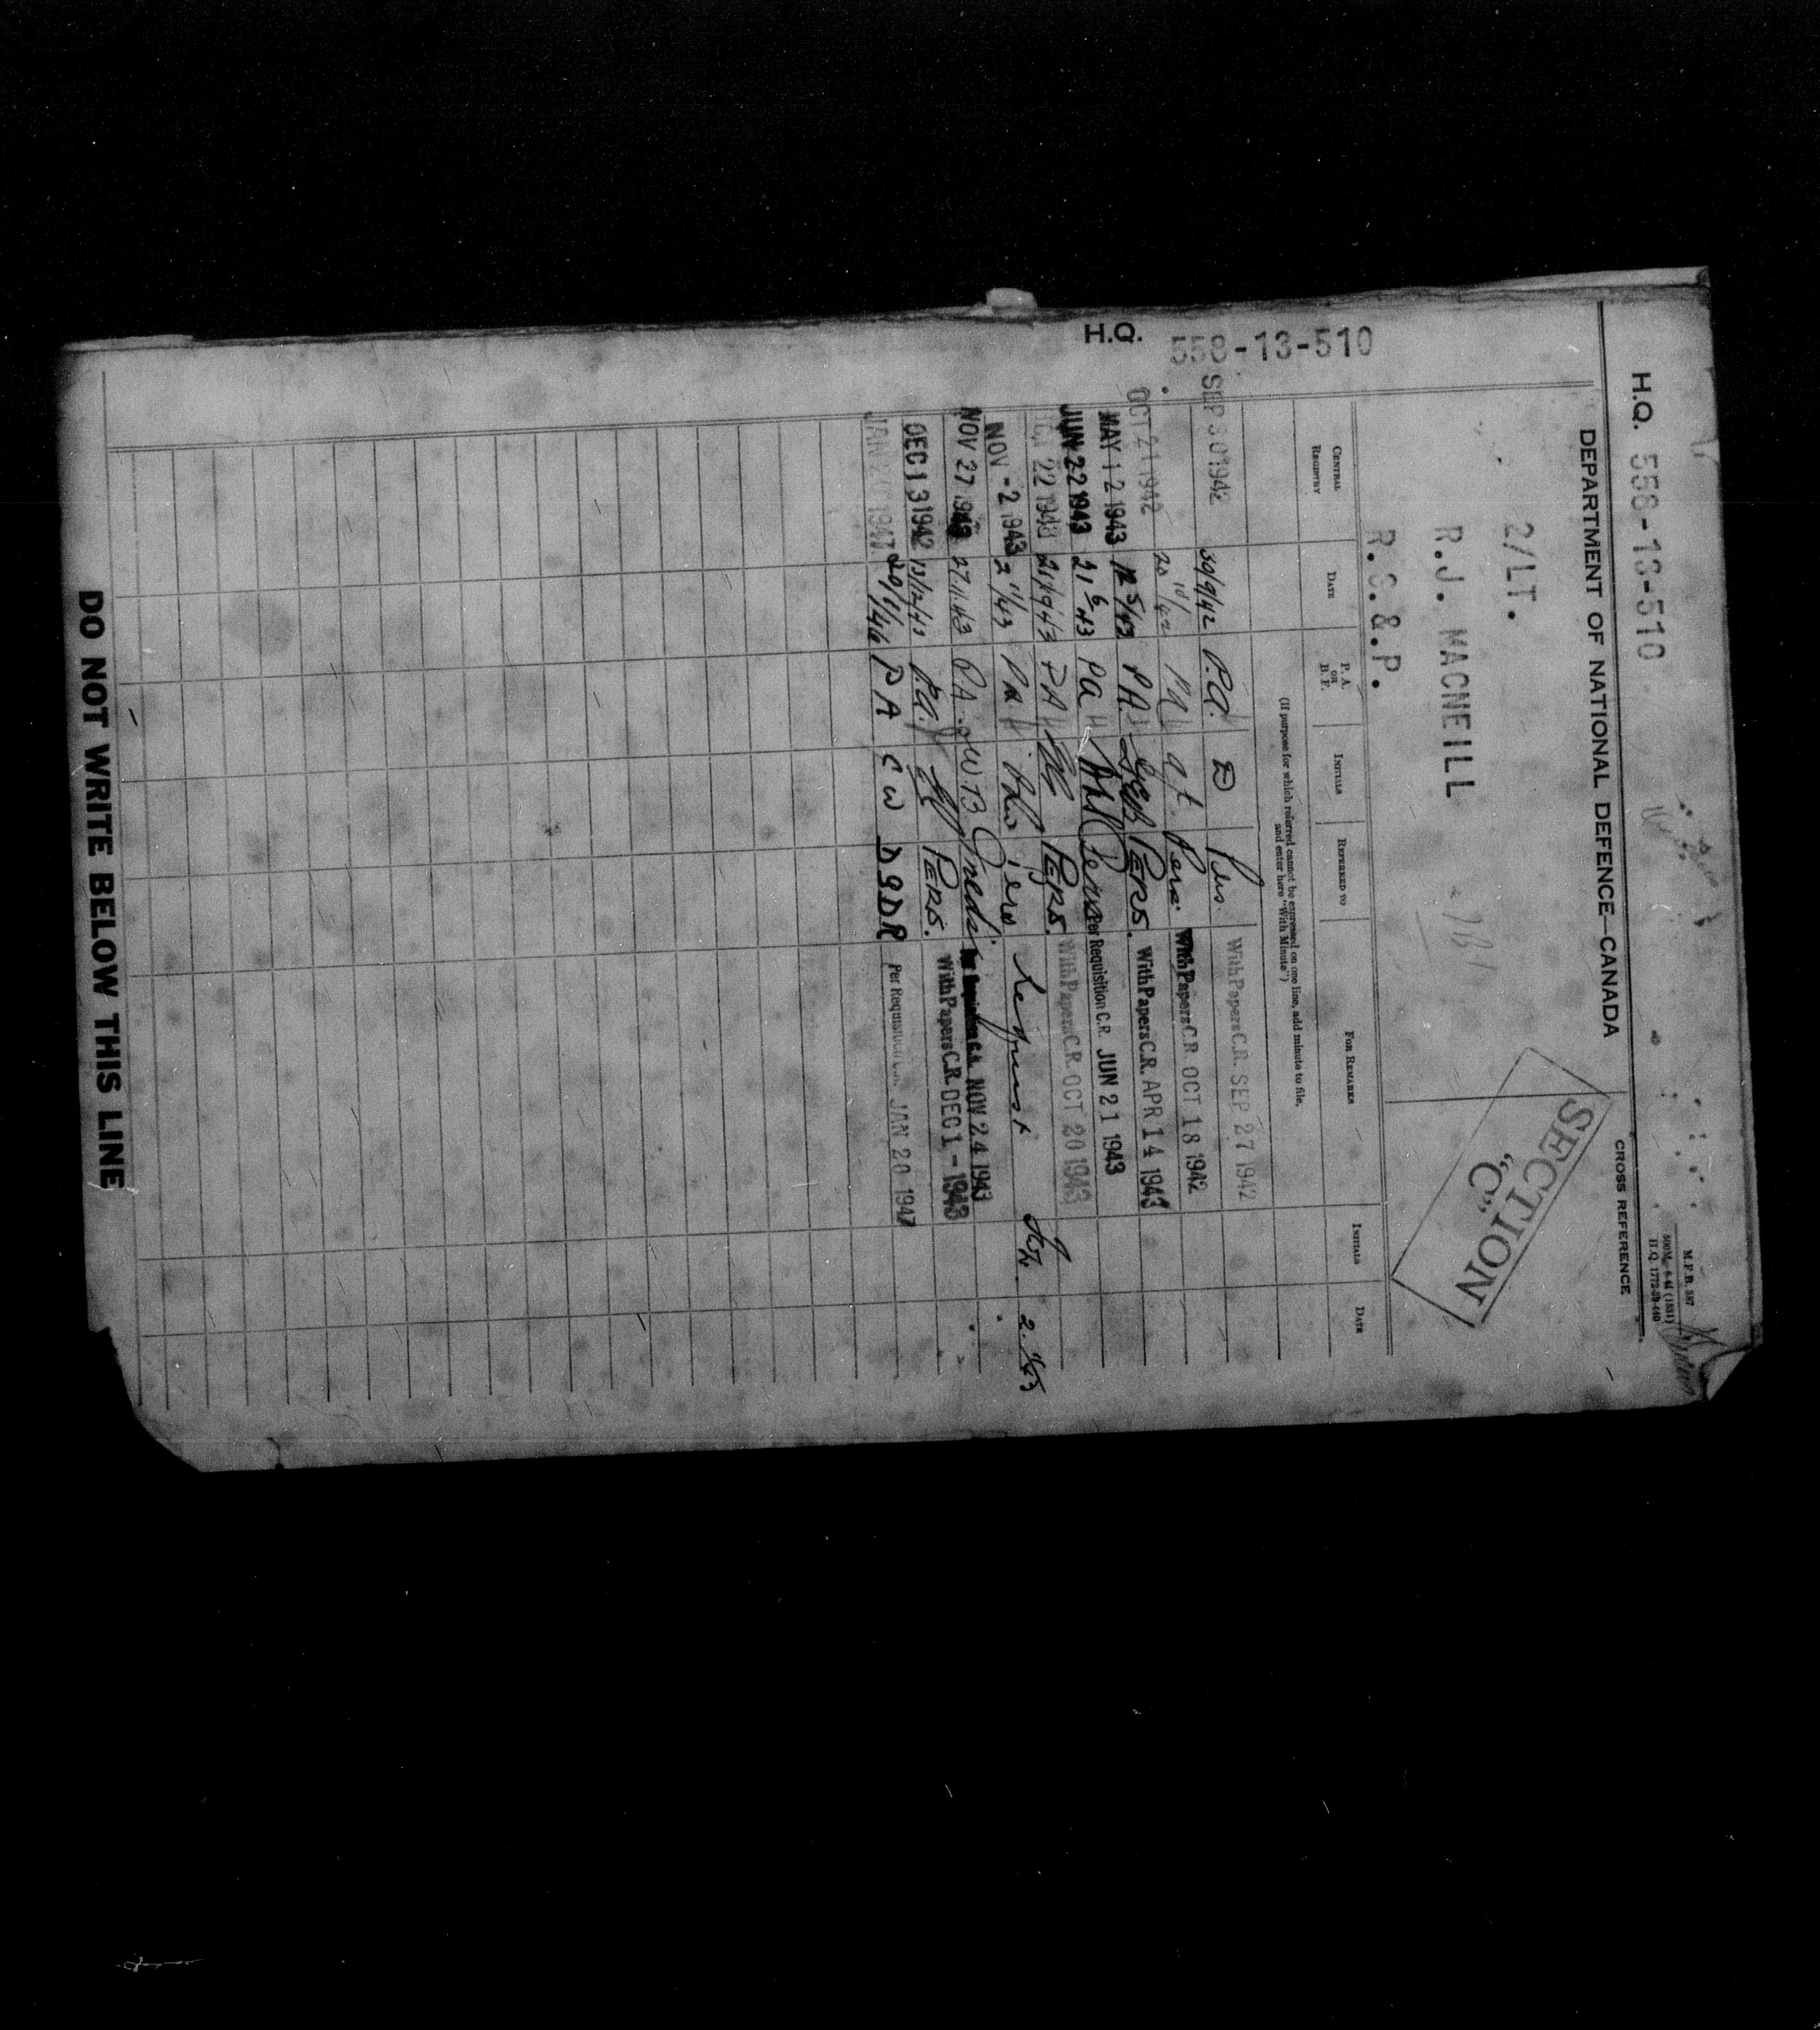 M.F.B. 387
500M—8-41 (1531)
H.Q. 1772-39-440
H.Q. 558-13-510
CROSS REFERENCE
DEPARTMENT OF NATIONAL DEFENCE—CANADA
SECTION
"C"
2/LT.
R.J. MACNEILL
R.C.&.P.
H.Q. 558-13-510
CENTRAL REGISTRY DATE P.A. OR B.F. INITIALS REFERRED TO FOR REMARKS INITIALS DATE
(If purpose for which referred cannot be expressed on one line, add minute to file,
and enter here "With Minute")
Pers. With Papers C.R. SEP 27 1942
SEP 30 1942 30/9/42 P.A. Pers. With Papers C.R. OCT 18 1942
OCT 21 1942 20 10/42 PA PERS. With Papers C.R. APR 14 1943
MAY 12 1943 12 5/43 P.A. Pers Per Requisition C.R. JUN 21 1943
JUN 22 1943 21 6 43 PA PERS. With Papers C.R. OCT 20 1943
22 1943 PA Request 2.11/43
NOV -2 1943 2 11/43 PA Per Requisition C.R. NOV 24 1943
NOV 27 1943 27.11.43 P.A. W.B. PERS. With Papers C.R. DEC 1 - 1943
DEC 13 1942 13/12/43 P.A. DGDR Per Requisition C.R. JAN 20 1947
JAN 20 1947 20/1/46 PA CW
DO NOT WRITE BELOW THIS LINE